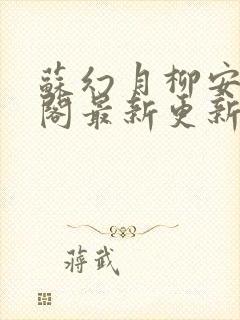 蘇幻月柳安
閣最新更新
蔣武